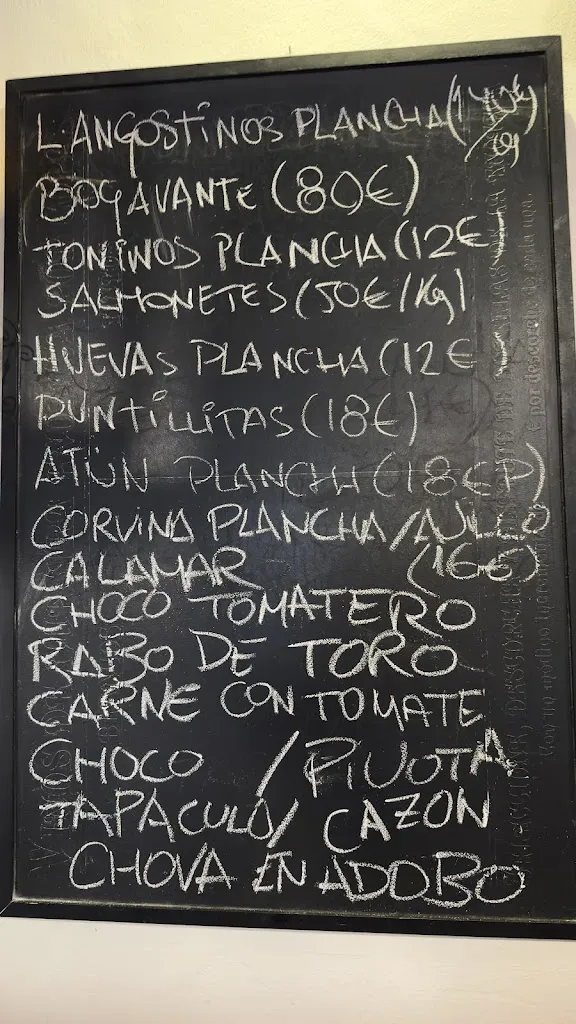 LANGOSTINOS PLANCHA (140€/Kg)
BOGAVANTE (80€)
TONINOS PLANCHA (12€)
SALMONETES (50€/Kg)
HUEVAS PLANCHA (12€
PUNTILLITAS (18€)
ATÚN PLANCHA (18€P)
CORVINA PLANCHA/AJILLO
CALAMAR (16€)
CHOCO TOMATERO
RABO DE TORO
CARNE CON TOMATE
CHOCO / PIJOTA
TAPACULO/ CAZON
CHOVA EN ADOBO